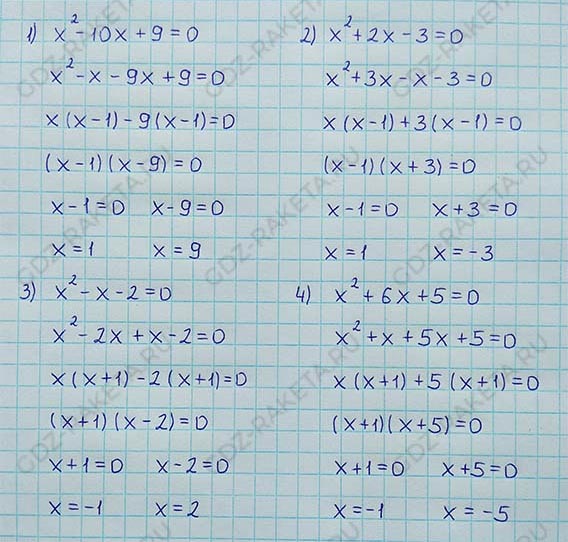 1) x² - 10x + 9 = 0
x² - x - 9x + 9 = 0
x(x-1) - 9(x-1) = 0
(x-1)(x-9) = 0
x-1=0 x-9=0
x=1 x=9
2) x² + 2x - 3 = 0
x² + 3x - x - 3 = 0
x(x-1) + 3(x-1) = 0
(x-1)(x+3) = 0
x-1=0 x+3=0
x=1 x=-3
3) x² - x - 2 = 0
x² - 2x + x - 2 = 0
x(x+1) - 2(x+1) = 0
(x+1)(x-2) = 0
x+1=0 x-2=0
x=-1 x=2
4) x² + 6x + 5 = 0
x² + x + 5x + 5 = 0
x(x+1) + 5(x+1) = 0
(x+1)(x+5) = 0
x+1=0 x+5=0
x=-1 x=-5
GDZ-RAKETA.RU